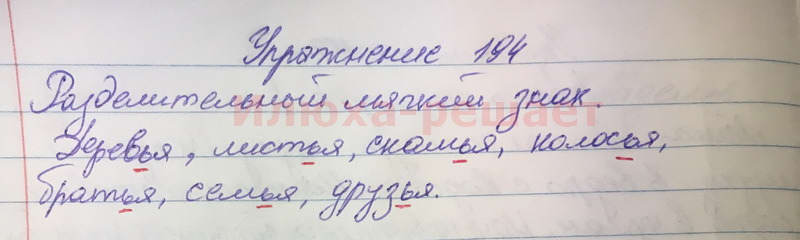 Упражнение 194
Разделительный мягкий знак.
илюха-решает
Деревья, листья, скамья, колосья,
братья, семья, друзья.